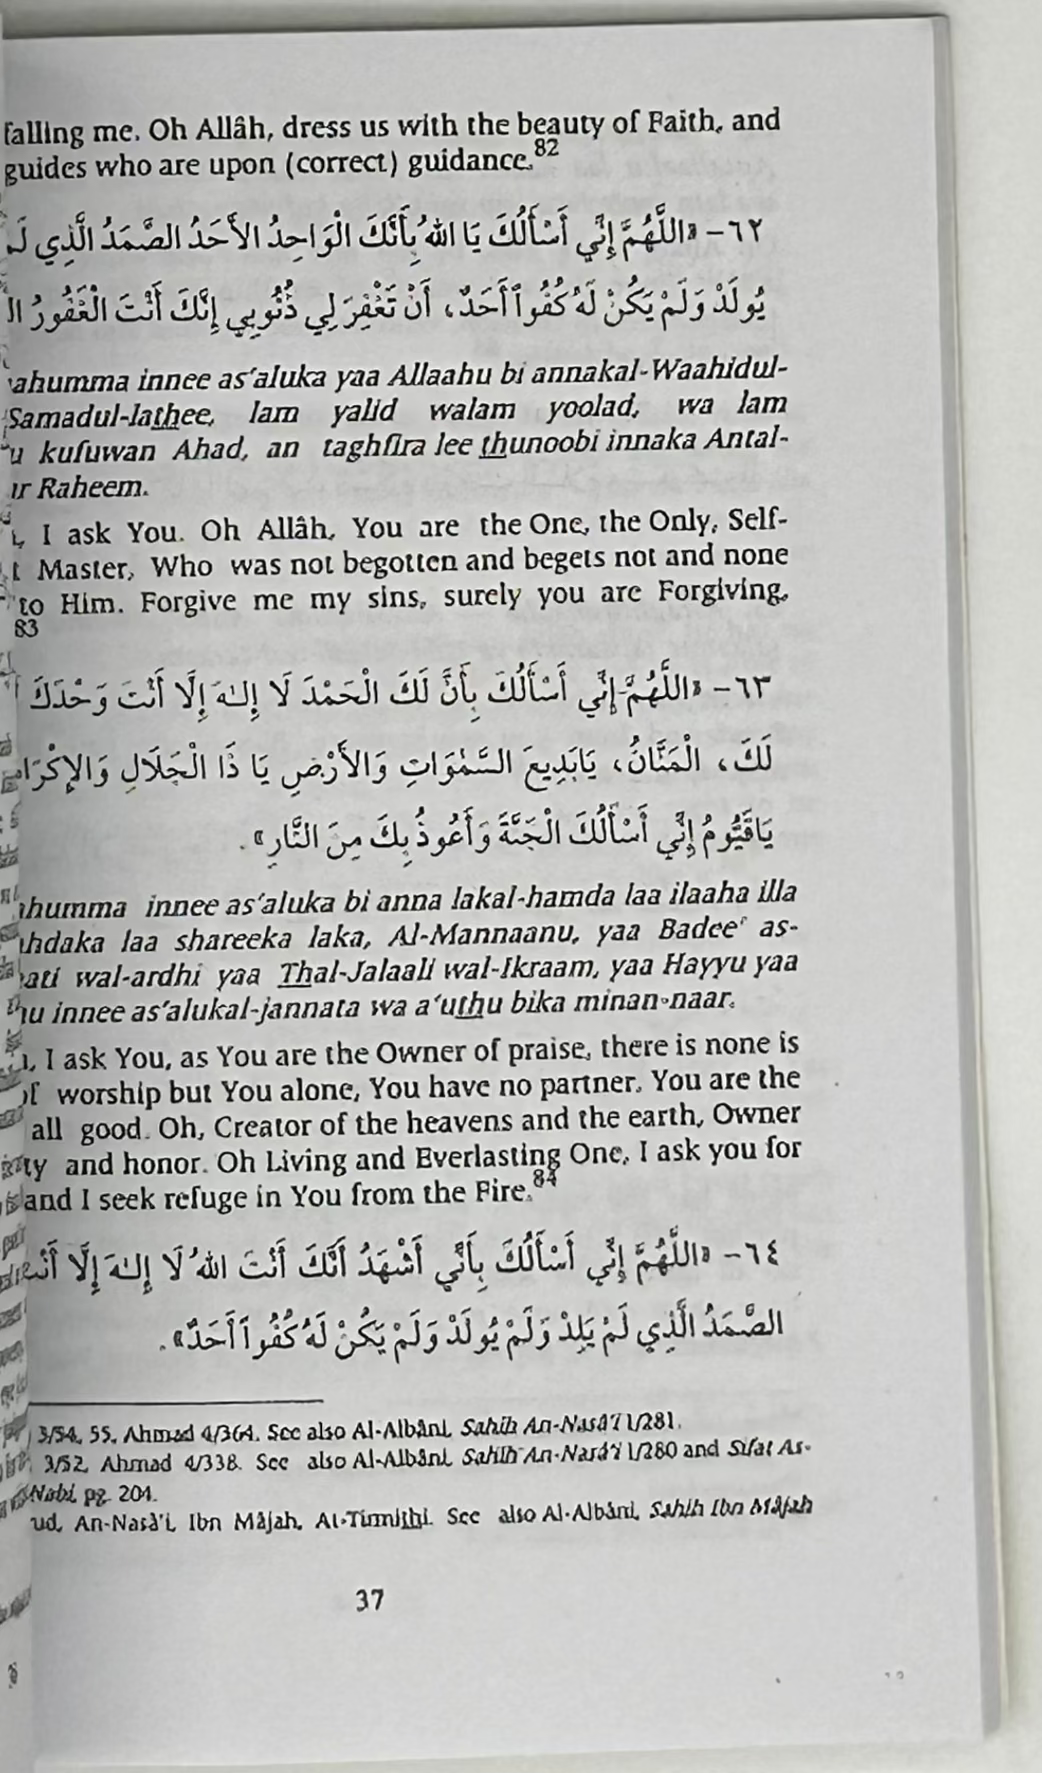 falling me. Oh Allâh, dress us with the beauty of Faith, and
guides who are upon (correct) guidance.82
٦٢- «اللَّهُمَّ إِنِّي أَسْأَلُكَ يَا اللهُ بِأَنَّكَ الْوَاحِدُ الأَحَدُ الصَّمَدُ الَّذِي
يُولَدْ وَلَمْ يَكُنْ لَهُ كُفُواً أَحَدٌ، أَنْ تَغْفِرَ لِي ذُنُوبِي إِنَّكَ أَنْتَ الْغَفُورُ
innee as'aluka yaa Allaahu bi annakal-Waahidul-
Samadul-lathee, lam yalid walam yoolad, wa lam
kufuwan Ahad, an taghfira lee thunoobi innaka Antal-
Raheem.
I ask You. Oh Allâh, You are the One, the Only, Self-
Master, Who was not begotten and begets not and none
to Him. Forgive me my sins, surely you are Forgiving,
83
٦٣- «اللَّهُمَّ إِنِّي أَسْأَلُكَ بِأَنَّ لَكَ الْحَمْدَ لَا إِلَهَ إِلَّا أَنْتَ وَحْدَكَ
لَكَ، الْمَنَّانُ، يَابَدِيعَ السَّمٰوَاتِ وَالأَرْضِ يَا ذَا الْجَلَالِ وَالإِكْرَامِ
يَاقَيُّومُ إِنِّي أَسْأَلُكَ الْجَنَّةَ وَأَعُوذُ بِكَ مِنَ النَّارِ».
innee as'aluka bi anna lakal-hamda laa ilaaha illa
laa shareeka laka, Al-Mannaanu, yaa Badee' as-
wal-ardhi yaa Thal-Jalaali wal-Ikraam, yaa Hayyu yaa
innee as'alukal-jannata wa a'uthu bika minan-naar.
I ask You, as You are the Owner of praise, there is none is
worship but You alone, You have no partner. You are the
all good. Oh, Creator of the heavens and the earth, Owner
and honor. Oh Living and Everlasting One, I ask you for
and I seek refuge in You from the Fire.84
٦٤- «اللَّهُمَّ إِنِّي أَسْأَلُكَ بِأَنِّي أَشْهَدُ أَنَّكَ أَنْتَ اللهُ لَا إِلَهَ إِلَّا أَنْتَ
الصَّمَدُ الَّذِي لَمْ يَلِدْ وَلَمْ يُولَدْ وَلَمْ يَكُنْ لَهُ كُفُواً أَحَدٌ».
3/54, 55, Ahmad 4/364. See also Al-Albâni, Sahih An-Nasâ'i 1/281.
3/52, Ahmad 4/338. See also Al-Albâni, Sahih An-Nasâ'i 1/280 and Sifat As-
Nabi, pg. 204.
ud, An-Nasâ'i, Ibn Mâjah, At-Tirmithi. See also Al-Albâni, Sahih Ibn Mâjah
37